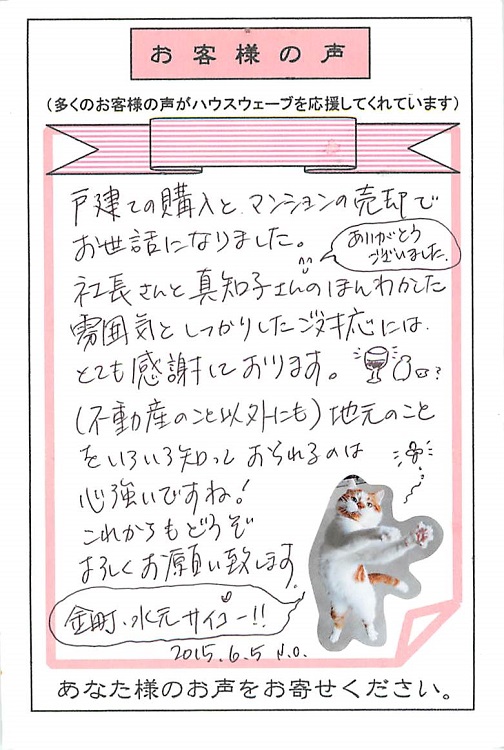 お客様の声
（多くのお客様の声がハウスウェーブを応援してくれています）
戸建ての購入と、マンションの売却で
お世話になりました。
ありがとう
ございました。
社長さんと真知子さんのほんわかした
雰囲気としっかりしたご対応には、
とても感謝しております。
?
(不動産のこと以外にも)地元のこと
をいろいろ知っておられるのは
心強いですね!
これからもどうぞ
よろしくお願い致します。
金町、水元サイコー!!
2015.6.5 N.O.
あなた様のお声をお寄せください。